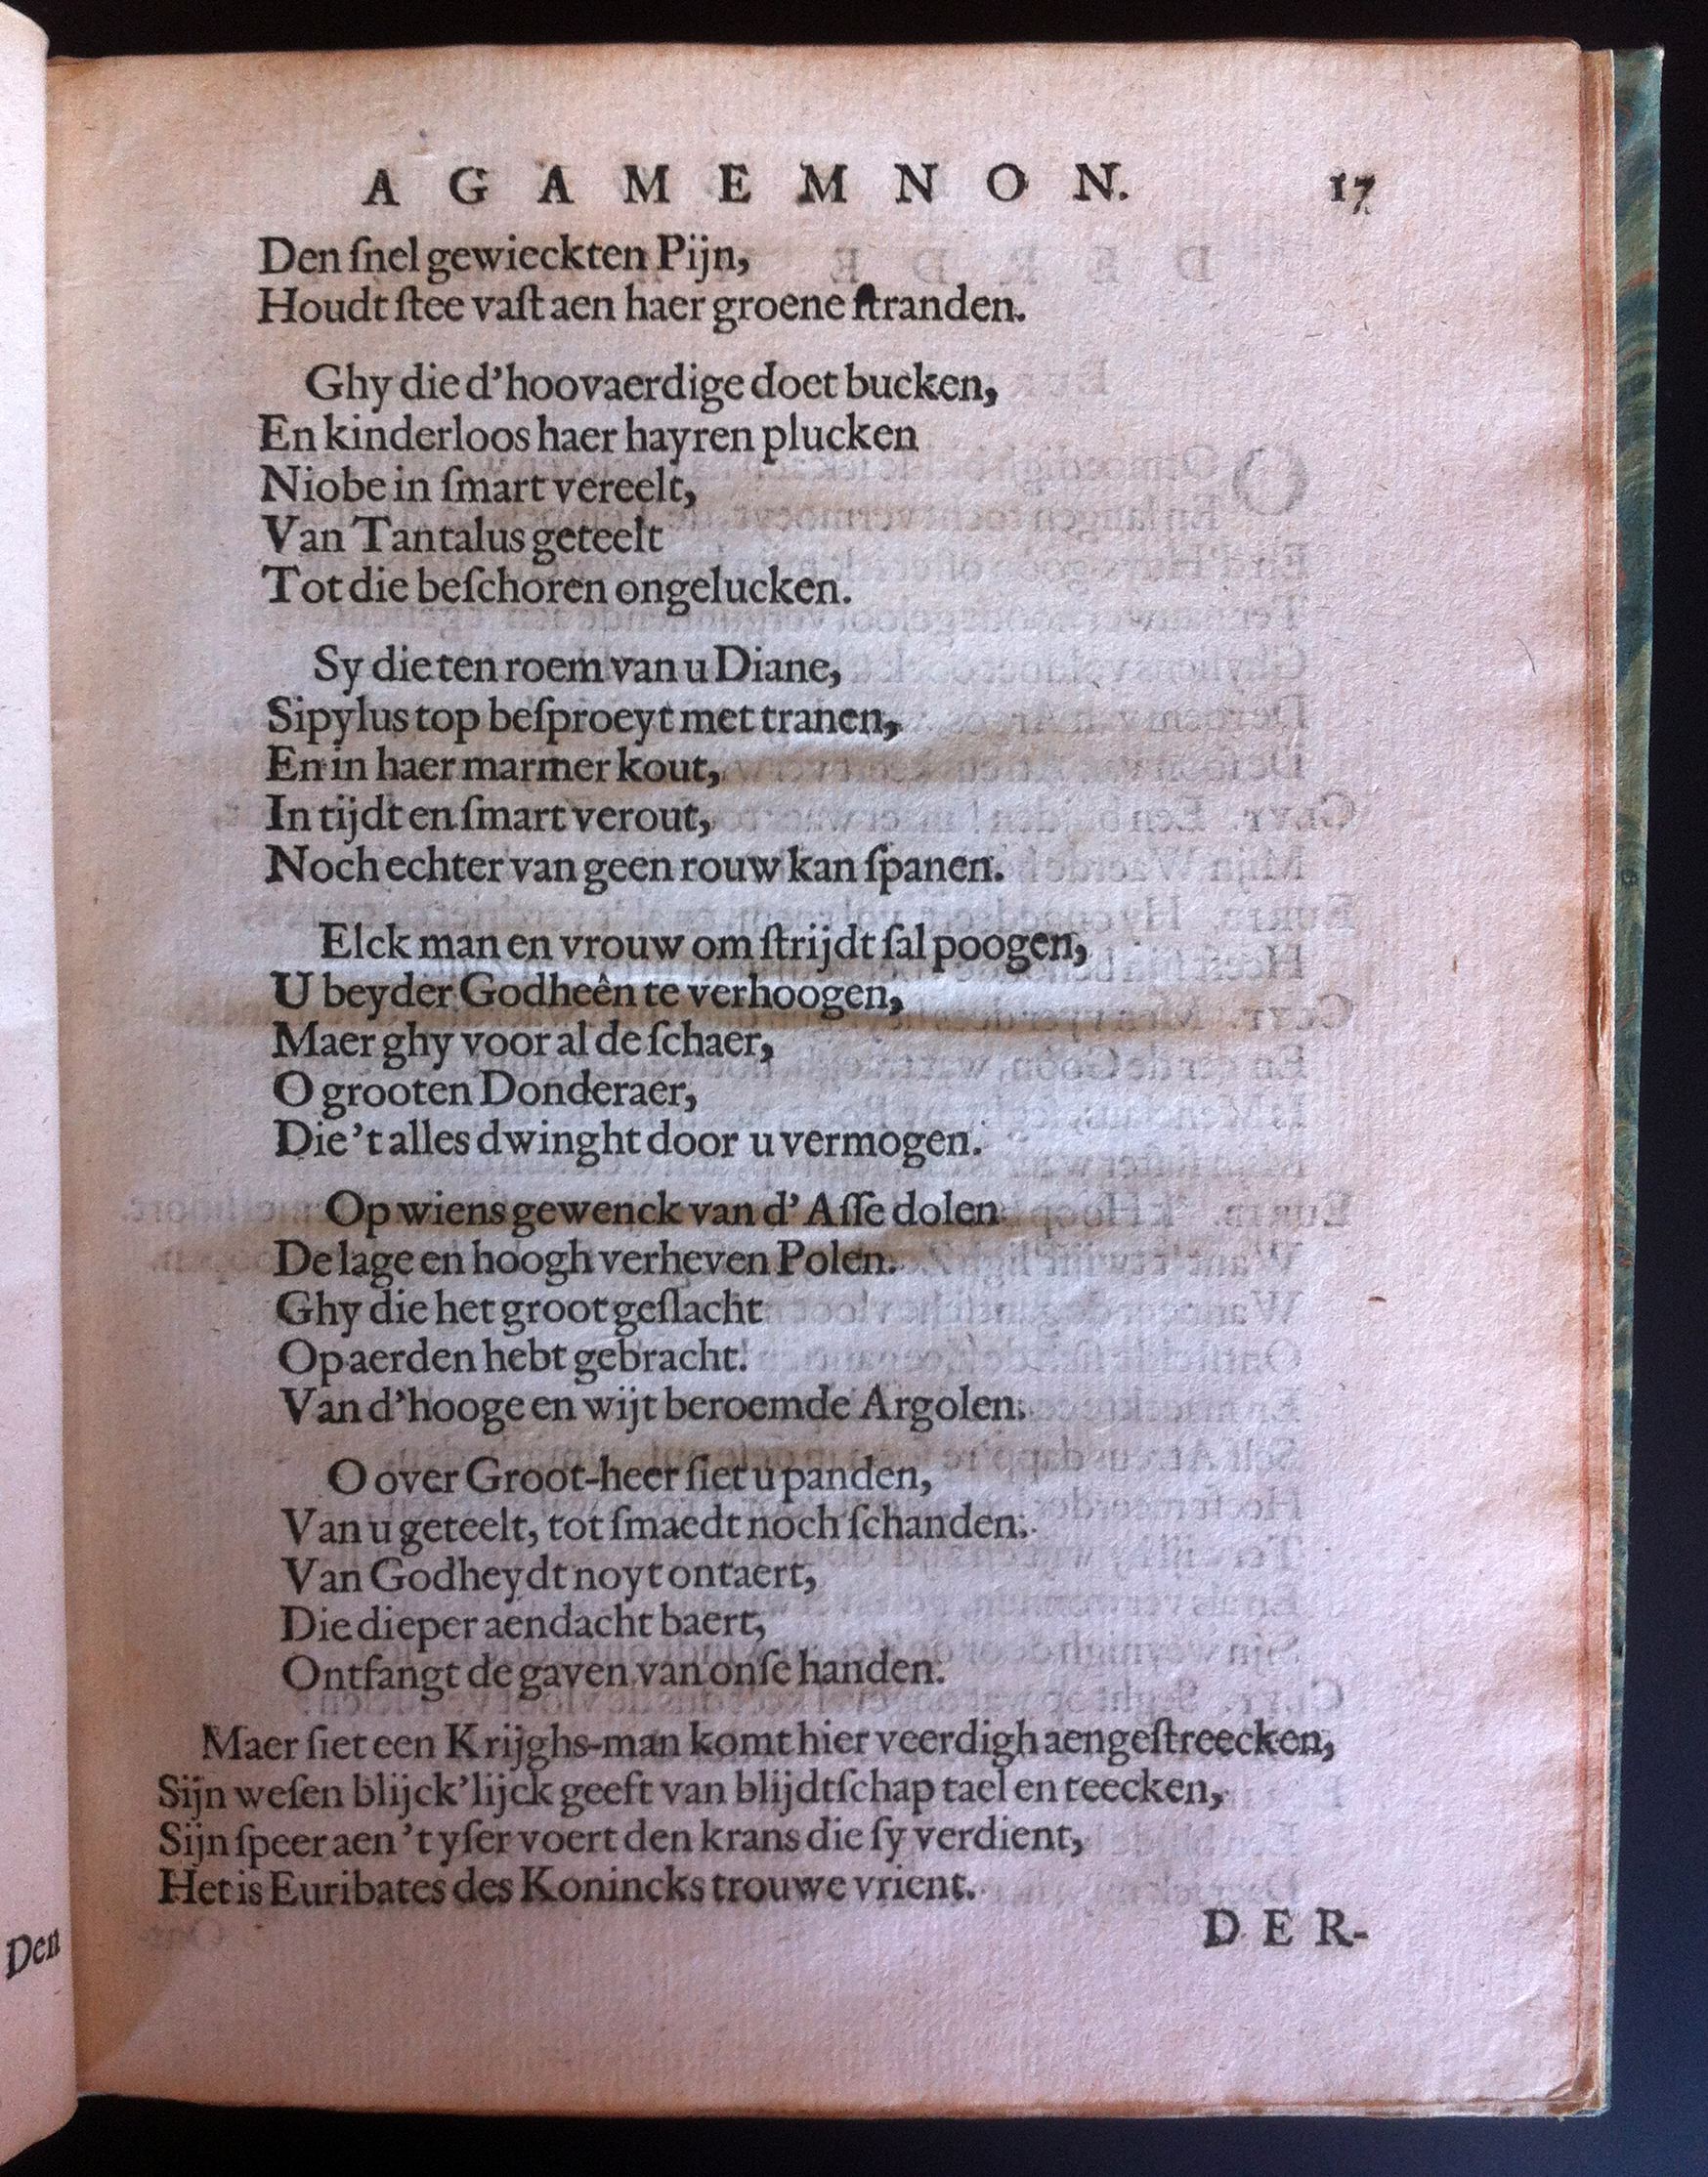 A G A M E M N O N. 17
Den ſnel gewieckten Pijn,
Houdt ſtee vaſt aen haer groene ſtranden.
Ghy die d'hoovaerdige doet bucken,
En kinderloos haer hayren plucken
Niobe in ſmart vereelt,
Van Tantalus geteelt
Tot die beſchoren ongelucken.
Sy die ten roem van u Diane,
Sipylus top beſproeyt met tranen,
En in haer marmer kout,
In tijdt en ſmart verout,
Noch echter van geen rouw kan ſpanen.
Elck man en vrouw om ſtrijdt ſal poogen,
U beyder Godheên te verhoogen,
Maer ghy voor al de ſchaer,
O grooten Donderaer,
Die 't alles dwinght door u vermogen.
Op wiens gewenck van d' Aſſe dolen
De lage en hoogh verheven Polen.
Ghy die het groot geſlacht
Op aerden hebt gebracht.
Van d'hooge en wijt beroemde Argolen.
O over Groot-heer ſiet u panden,
Van u geteelt, tot ſmaedt noch ſchanden.
Van Godheydt noyt ontaert,
Die dieper aendacht baert,
Ontfangt de gaven van onſe handen.
Maer ſiet een Krijghs-man komt hier veerdigh aengeſtreecken,
Sijn weſen blijck'lijck geeft van blijdtſchap tael en teecken,
Sijn ſpeer aen 't yſer voert den krans die ſy verdient,
Het is Euribates des Konincks trouwe vrient.
D E R-
Den